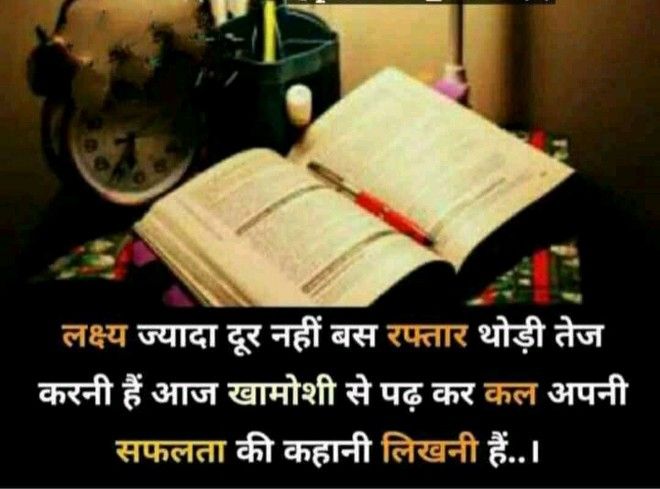 लक्ष्य ज्यादा दूर नहीं बस रफ्तार थोड़ी तेज
करनी हैं आज खामोशी से पढ़ कर कल अपनी
सफलता की कहानी लिखनी हैं..।